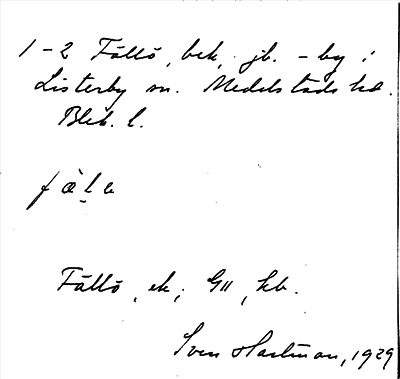 1-2 Fällö, bek, jb. - by i
Listerby sn. Medelstads hd.
Blek. l.
fæ̀l̥e
Fällö, ek; GII, kb.
Sven Hartman, 1929